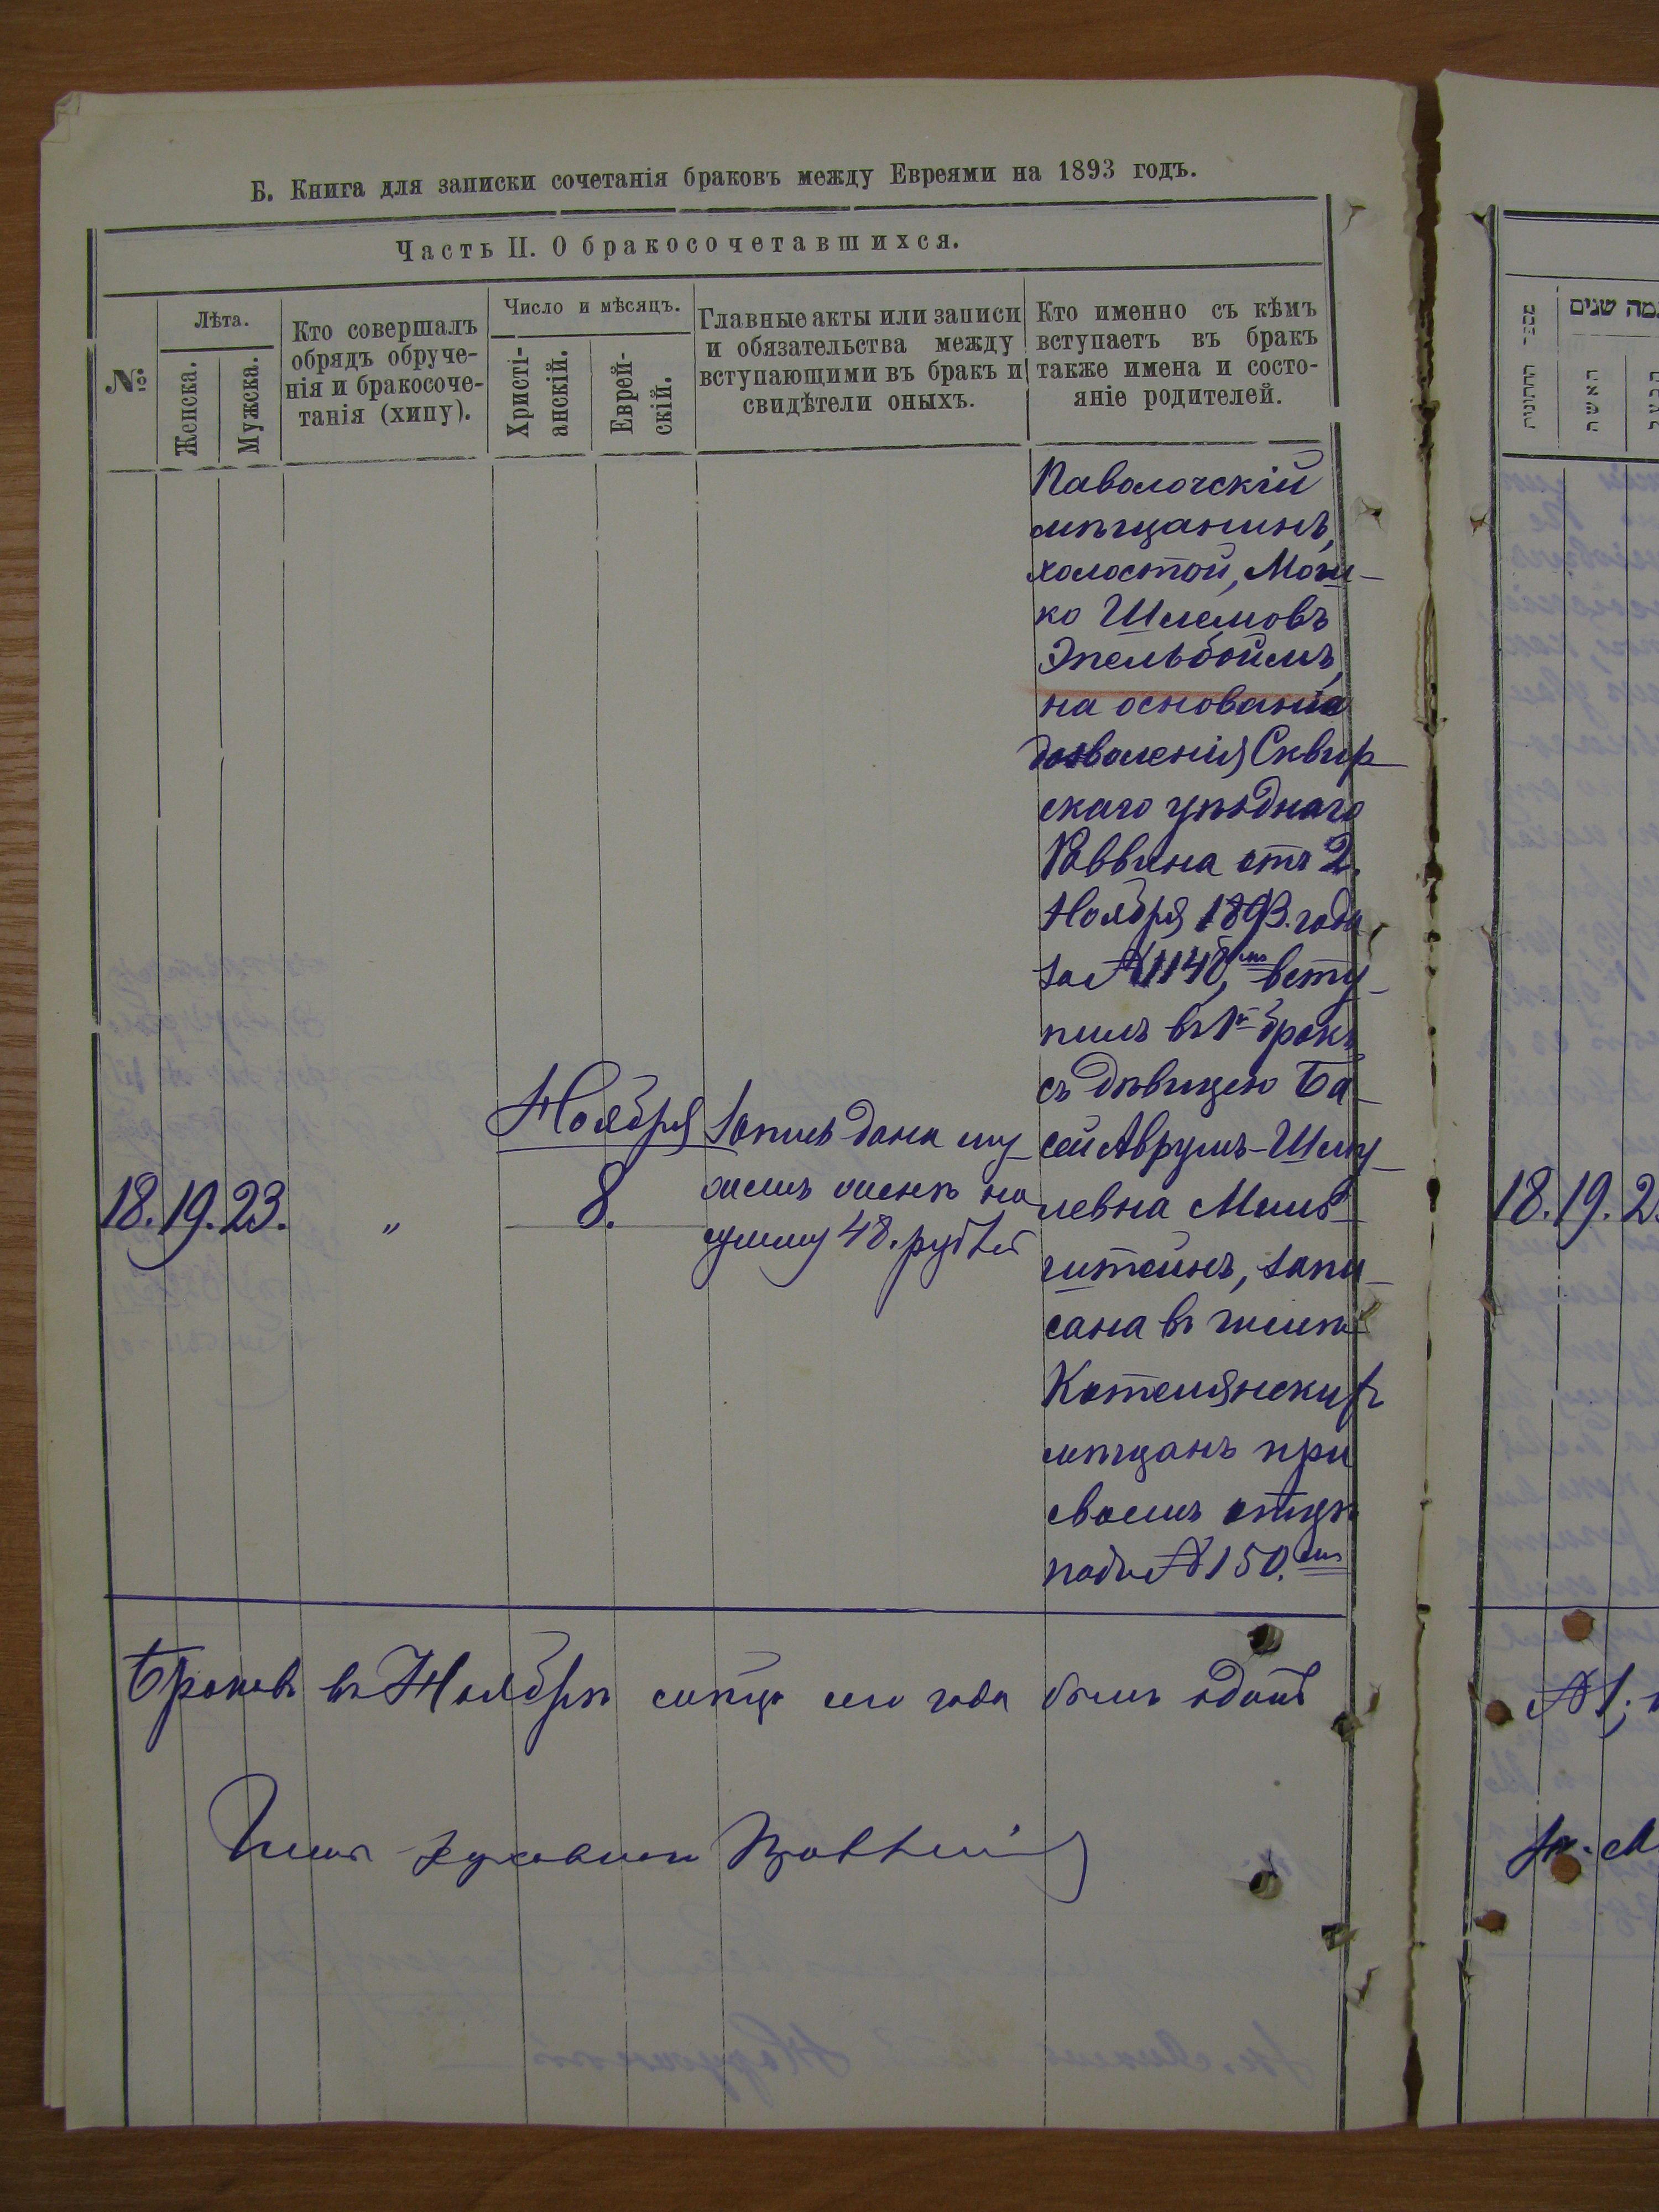 Б. Книга для записки сочетанія браковъ между Евреями на 1893 годъ.
Часть II. О бракосочетавшихся.
№
Лѣта.
Женска.
Мужска.
Кто совершалъ
обрядъ обруче-
нія и бракосоче-
танія (хипу).
Число и мѣсяцъ.
Христі-
анскій.
Еврей-
скій.
Главные акты или записи
и обязательства между
вступающими въ бракъ и
свидѣтели оныхъ.
Кто именно съ кѣмъ
вступаетъ въ бракъ
также имена и состо-
яніе родителей.
18. 19. 23.
„
Ноября
8.
Запись дана му
жемъ женѣ на
сумму 48. рублей
Паволочскій
мѣщанинъ,
холостой, Мош-
ко Шлемовъ
Эпельбоймъ,
на основаніи
дозволенія Сквир
скаго уѣзднаго
Раввина отъ 2.
Ноября 1893. года
за № 1148, всту-
пилъ въ 1й бракъ
съ дѣвицею Ба-
сей Аврумъ-Шму-
левна Миль-
штейнъ, запи-
сана въ числѣ
Котелянскихъ
мѣщанъ при
своемъ отцѣ
подъ № 150.мъ
Браковъ въ Ноябрѣ мѣсяцѣ сего года былъ одинъ
שנים
18. 19. 2
№ 1;